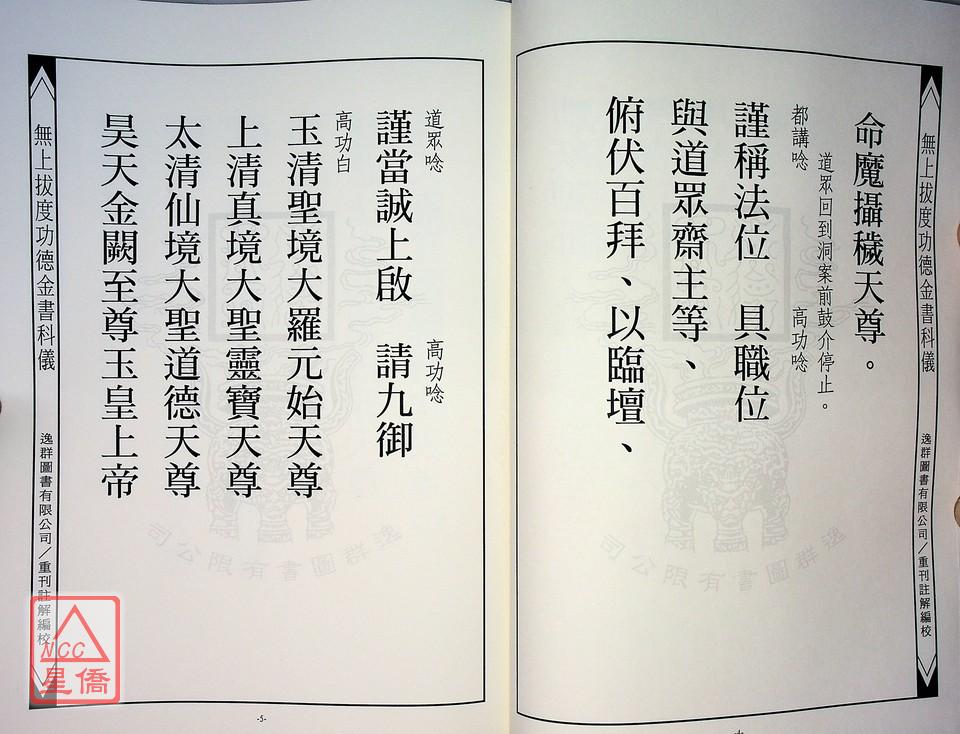 無上拔度功德金書科儀
逸群圖書有限公司／重刊註解編校
命魔攝穢天尊。
道眾回到洞案前鼓介停止。
都講唸 高功唸
謹稱法位 具職位
與道眾齋主等、
俯伏百拜、以臨壇、
逸群圖書有限公司
道眾唸 高功唸
謹當誠上啟 請九御
高功白
玉清聖境大羅元始天尊
上清真境大聖靈寶天尊
太清仙境大聖道德天尊
昊天金闕至尊玉皇上帝
逸群圖書有限公司
無上拔度功德金書科儀
逸群圖書有限公司／重刊註解編校
-5-
NCC
星僑